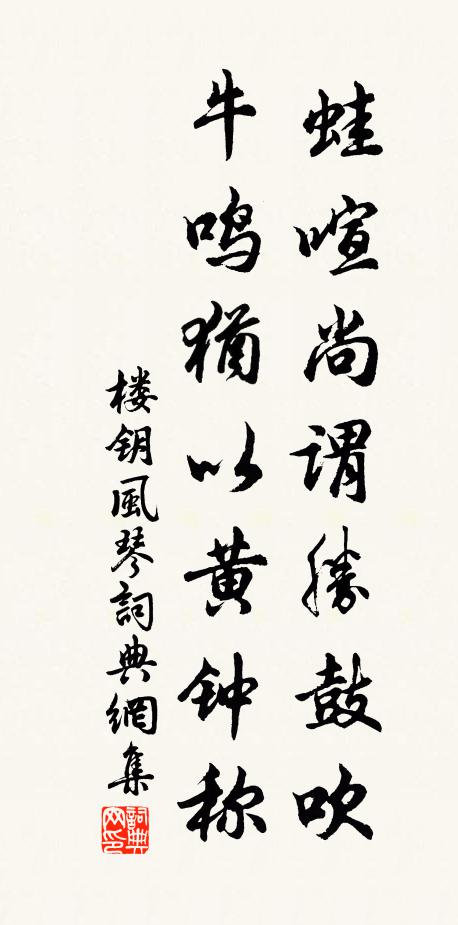 蛙喧尚謂勝鼓吹
牛鸣猶以黄钟称
楼钥風琴詞典網集
詞典网印